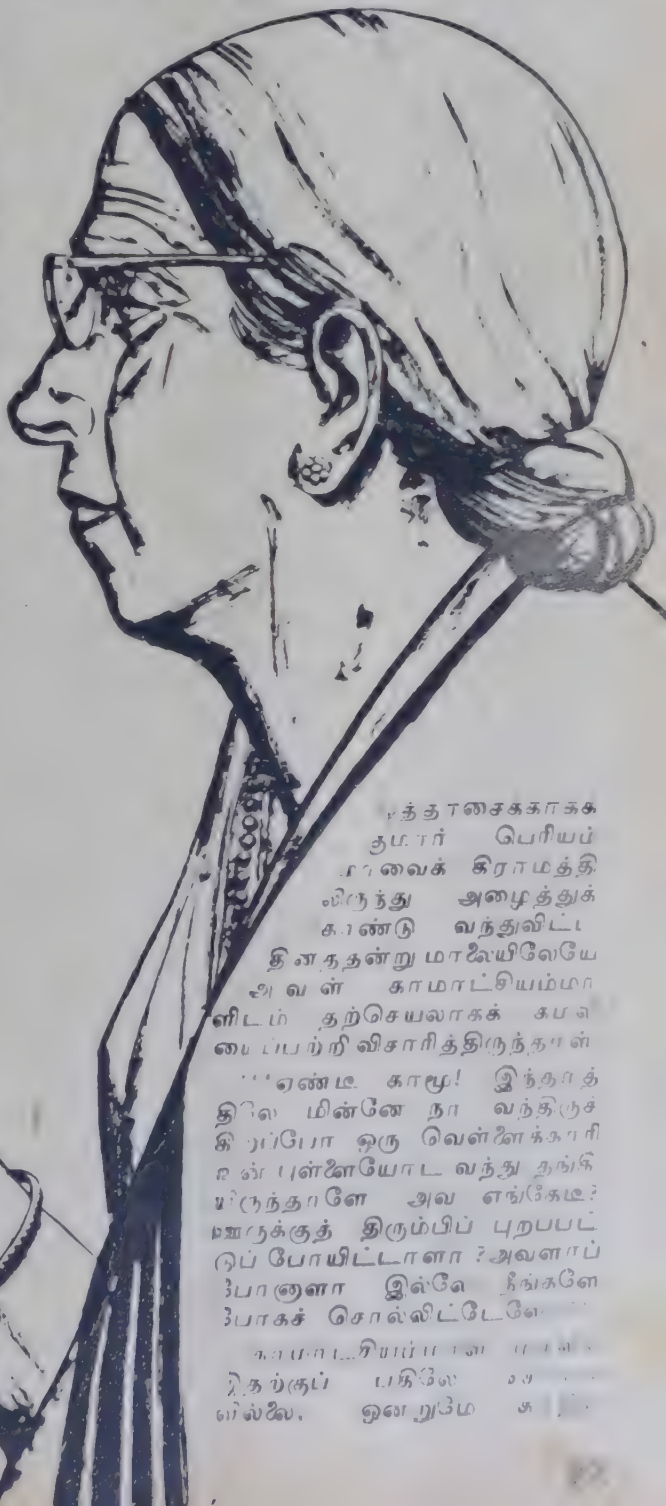 த்தாசைக்காகக
குமார் பெரியம்
மாவைக் கிராமத்தி
லிருந்து அழைத்துக்
காண்டு வந்துவிட்ட
தினத்தன்று மாலையிலேயே
அவள் காமாட்சியம்மா
ளிடம் தற்செயலாகக் கமலி
யைப்பற்றி விசாரித்திருந்தாள்
"ஏண்டீ காமூ! இந்தாத்
திலே மின்னே நா வந்திருச்
கிறப்போ ஒரு வெள்ளைக்காரி
உன் புள்ளையோட வந்து தங்கி
யிருந்தாளே அவ எங்கேடீ?
ஊருக்குத் திரும்பிப் புறபபட்
டுப் போயிட்டாளா ? அவளாப்
போனாளா இல்லே நீங்களே
போகச் சொல்லிட்டேளே
காமாட்சியம்மாள்
இதற்குப் பதிலே
வில்லை. ஒன்றுமே